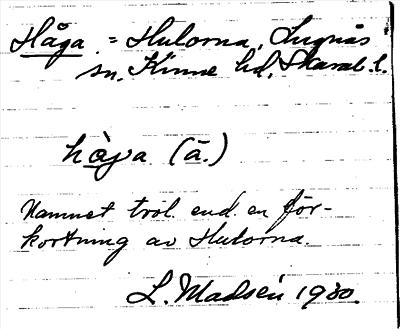 Håga = Hulorna, Lugnås
sn. Kinne hd, Skarab. l.
hàga (ā.)
Namnet trol. end. en för-
kortning av Hulorna.
L. Madsén 1930.